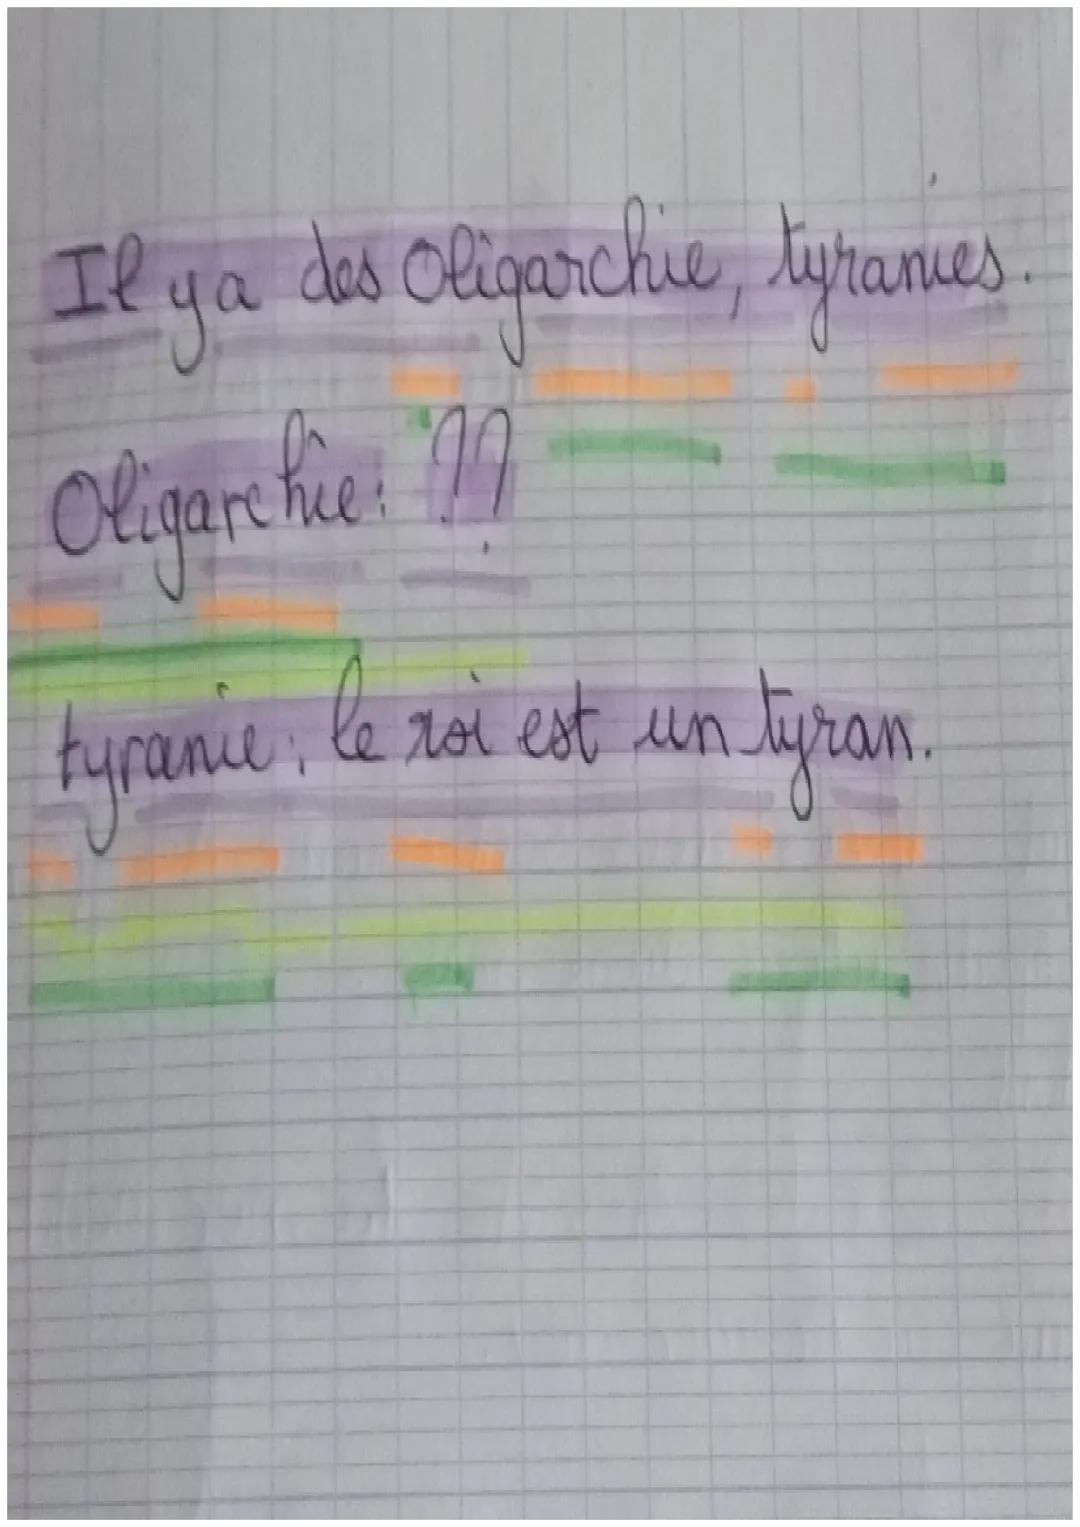 Il y a des Oligarchie, tyranies.
Oligarchie: ??
tyranie: le roi est un tyran.